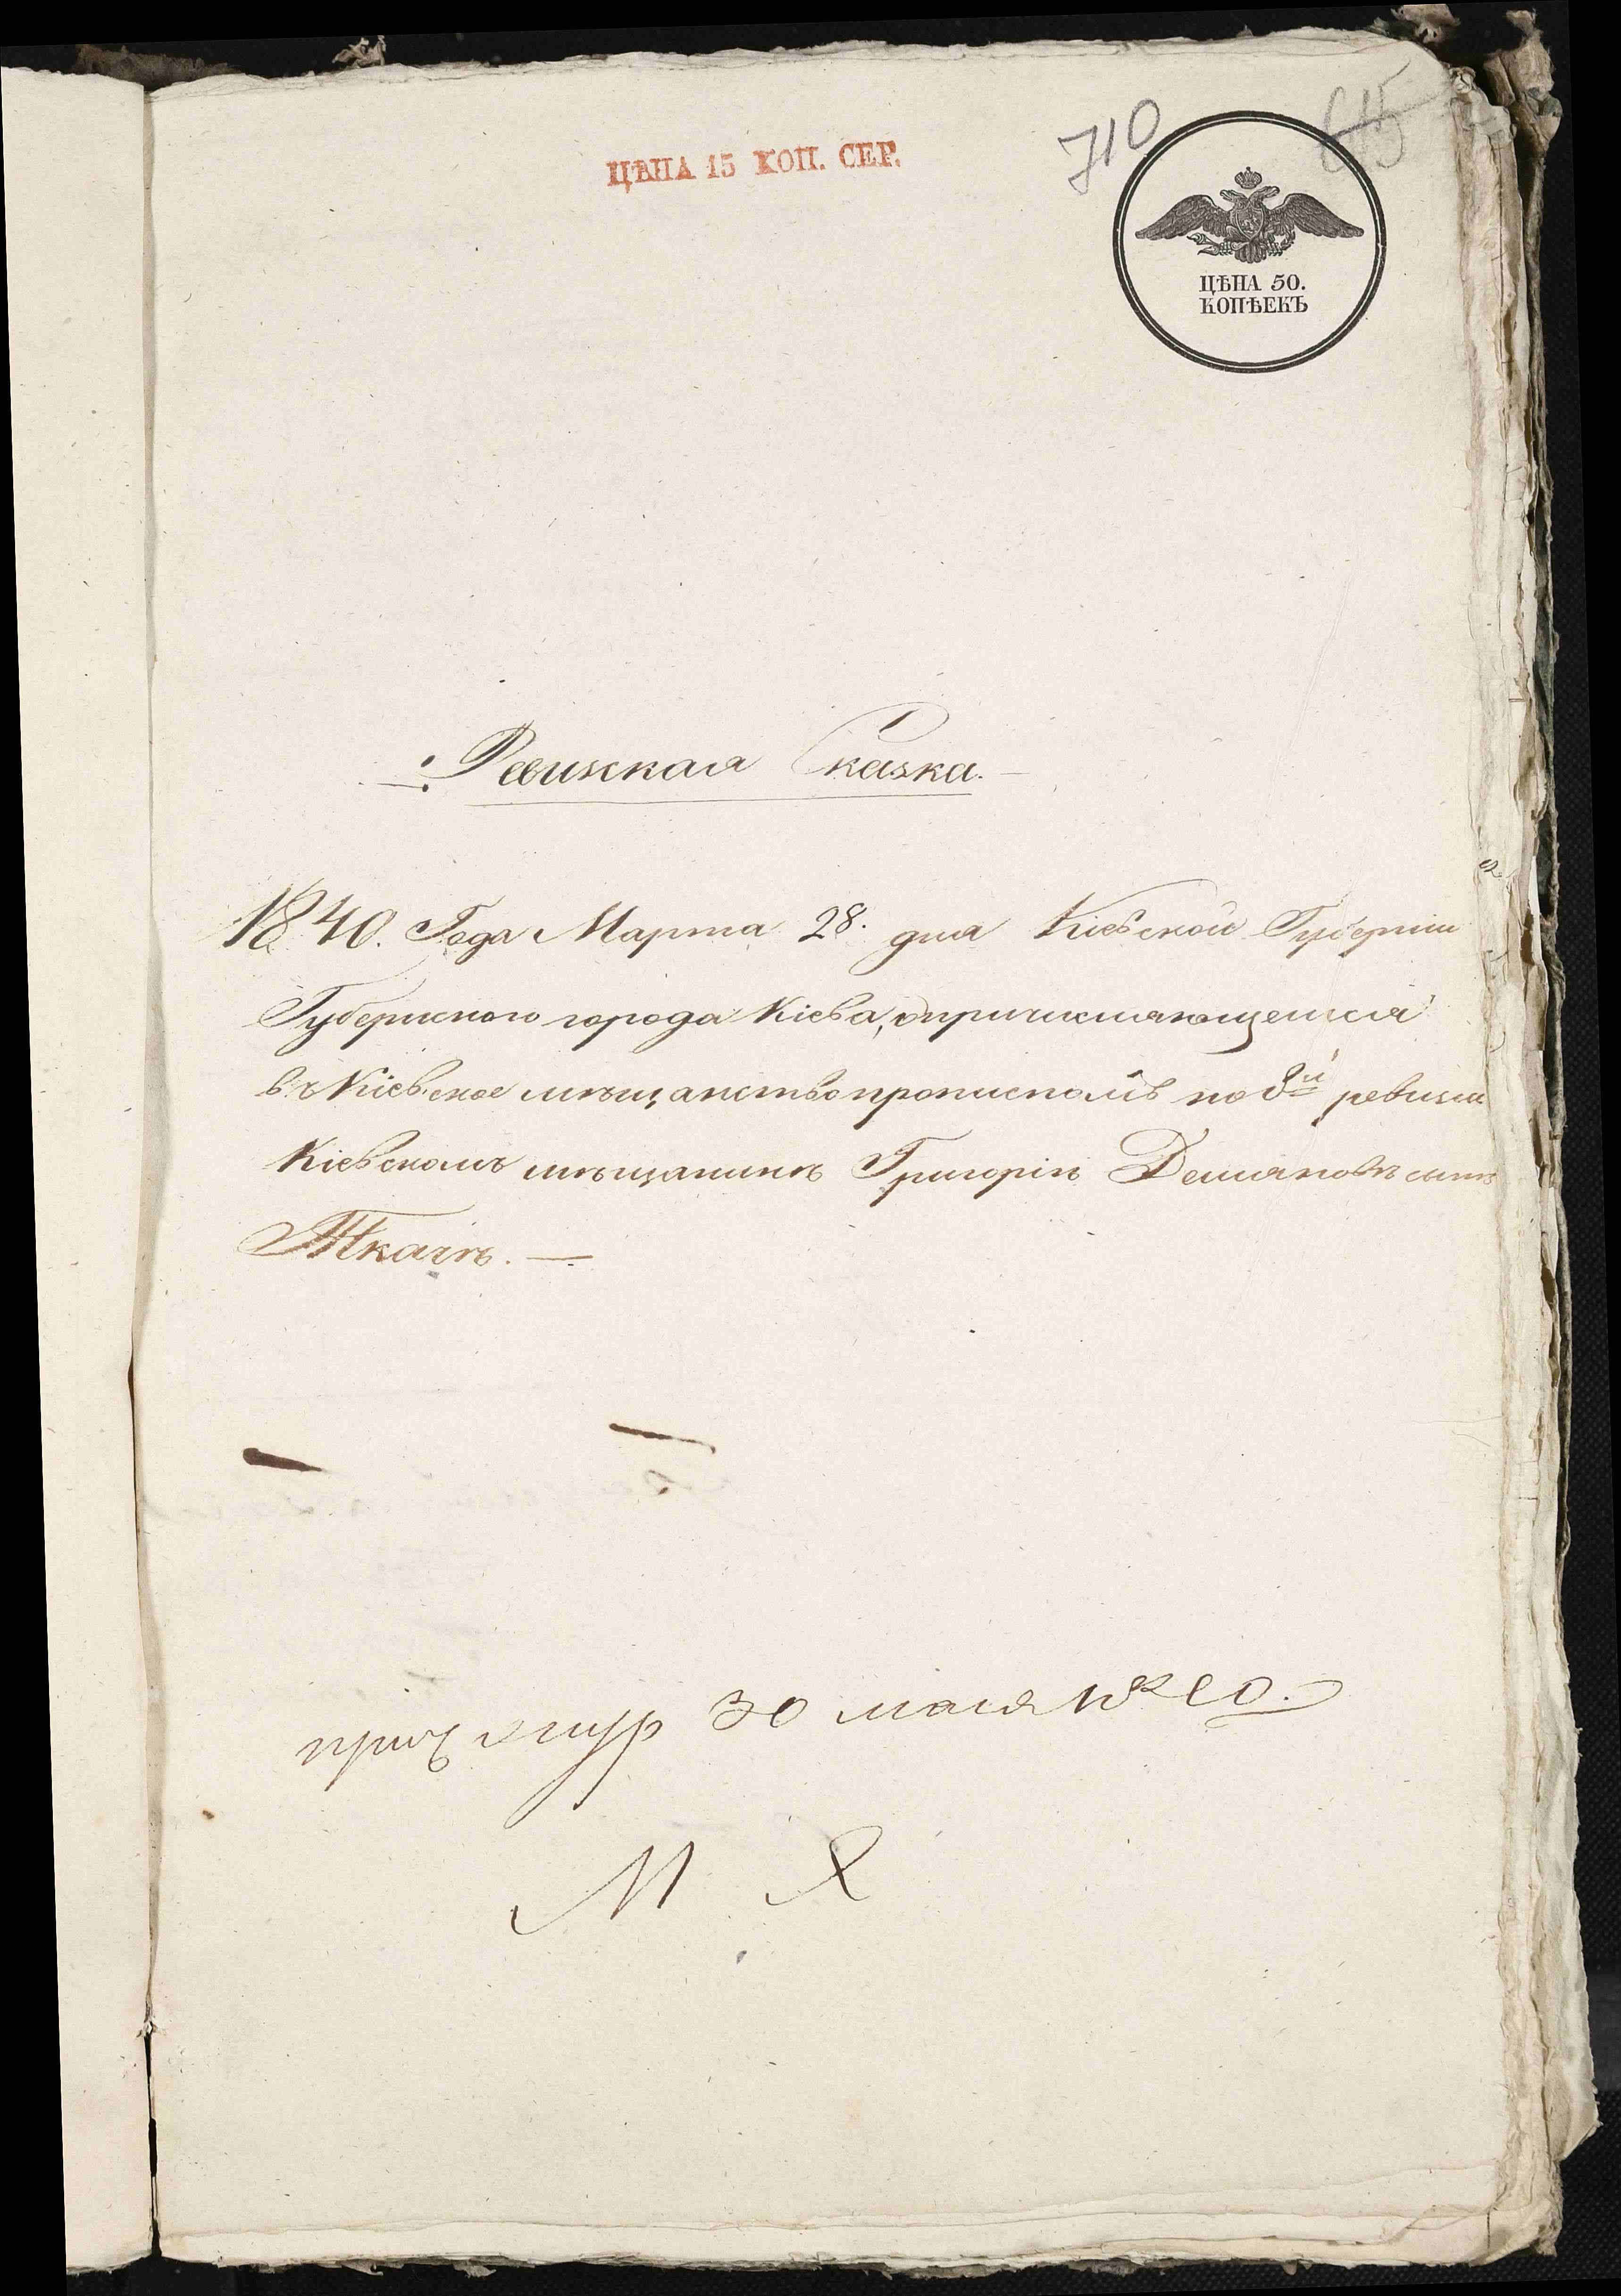 710
615
ЦѢНА 15 КОП. СЕР.
ЦѢНА 50.
КОПѢЕКЪ
Ревизская Сказка.
1840. Года Марта 28. дня Кіевской Губерніи
Губернского города Кіева, о причисляющемся
въ Кіевское мѣщанство прописномъ по 8й ревизіи
Кіевскомъ мѣщанинѣ Григоріѣ Демяновѣ сынѣ
Ткачѣ. —
30 мая
М Я